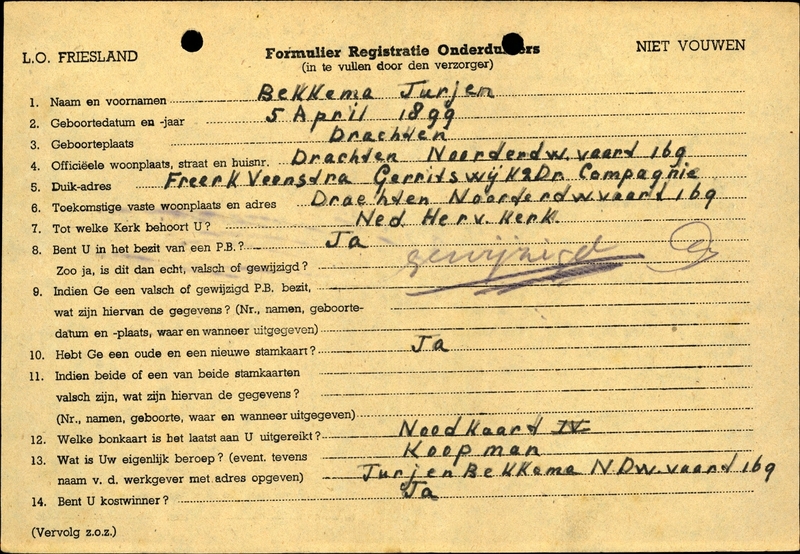 L.O. FRIESLAND
Formulier Registratie Onderduikers
NIET VOUWEN
(in te vullen door den verzorger)
1. Naam en voornamen Bekkema Jurjen
2. Geboortedatum en -jaar 5 April 1899
3. Geboorteplaats Drachten
4. Officiëele woonplaats, straat en huisnr. Drachten Noorderdw. vaart 169
5. Duik-adres Freerk Veenstra Gerritswijk Dr. Compagnie
6. Toekomstige vaste woonplaats en adres Drachten Noorderdw vaart 169
7. Tot welke Kerk behoort U? Ned Herv. Kerk.
8. Bent U in het bezit van een P.B.? Ja
Zoo ja, is dit dan echt, valsch of gewijzigd? gewijzigd
9. Indien Ge een valsch of gewijzigd P.B. bezit,
wat zijn hiervan de gegevens? (Nr., namen, geboorte-
datum en -plaats, waar en wanneer uitgegeven)
10. Hebt Ge een oude en een nieuwe stamkaart? Ja
11. Indien beide of een van beide stamkaarten
valsch zijn, wat zijn hiervan de gegevens?
(Nr., namen, geboorte, waar en wanneer uitgegeven)
12. Welke bonkaart is het laatst aan U uitgereikt? Noodkaart IV
13. Wat is Uw eigenlijk beroep? (event. tevens Koopman
naam v. d. werkgever met adres opgeven) Jurjen Bekkema N Dw. vaart 169
14. Bent U kostwinner? Ja
(Vervolg z.o.z.)